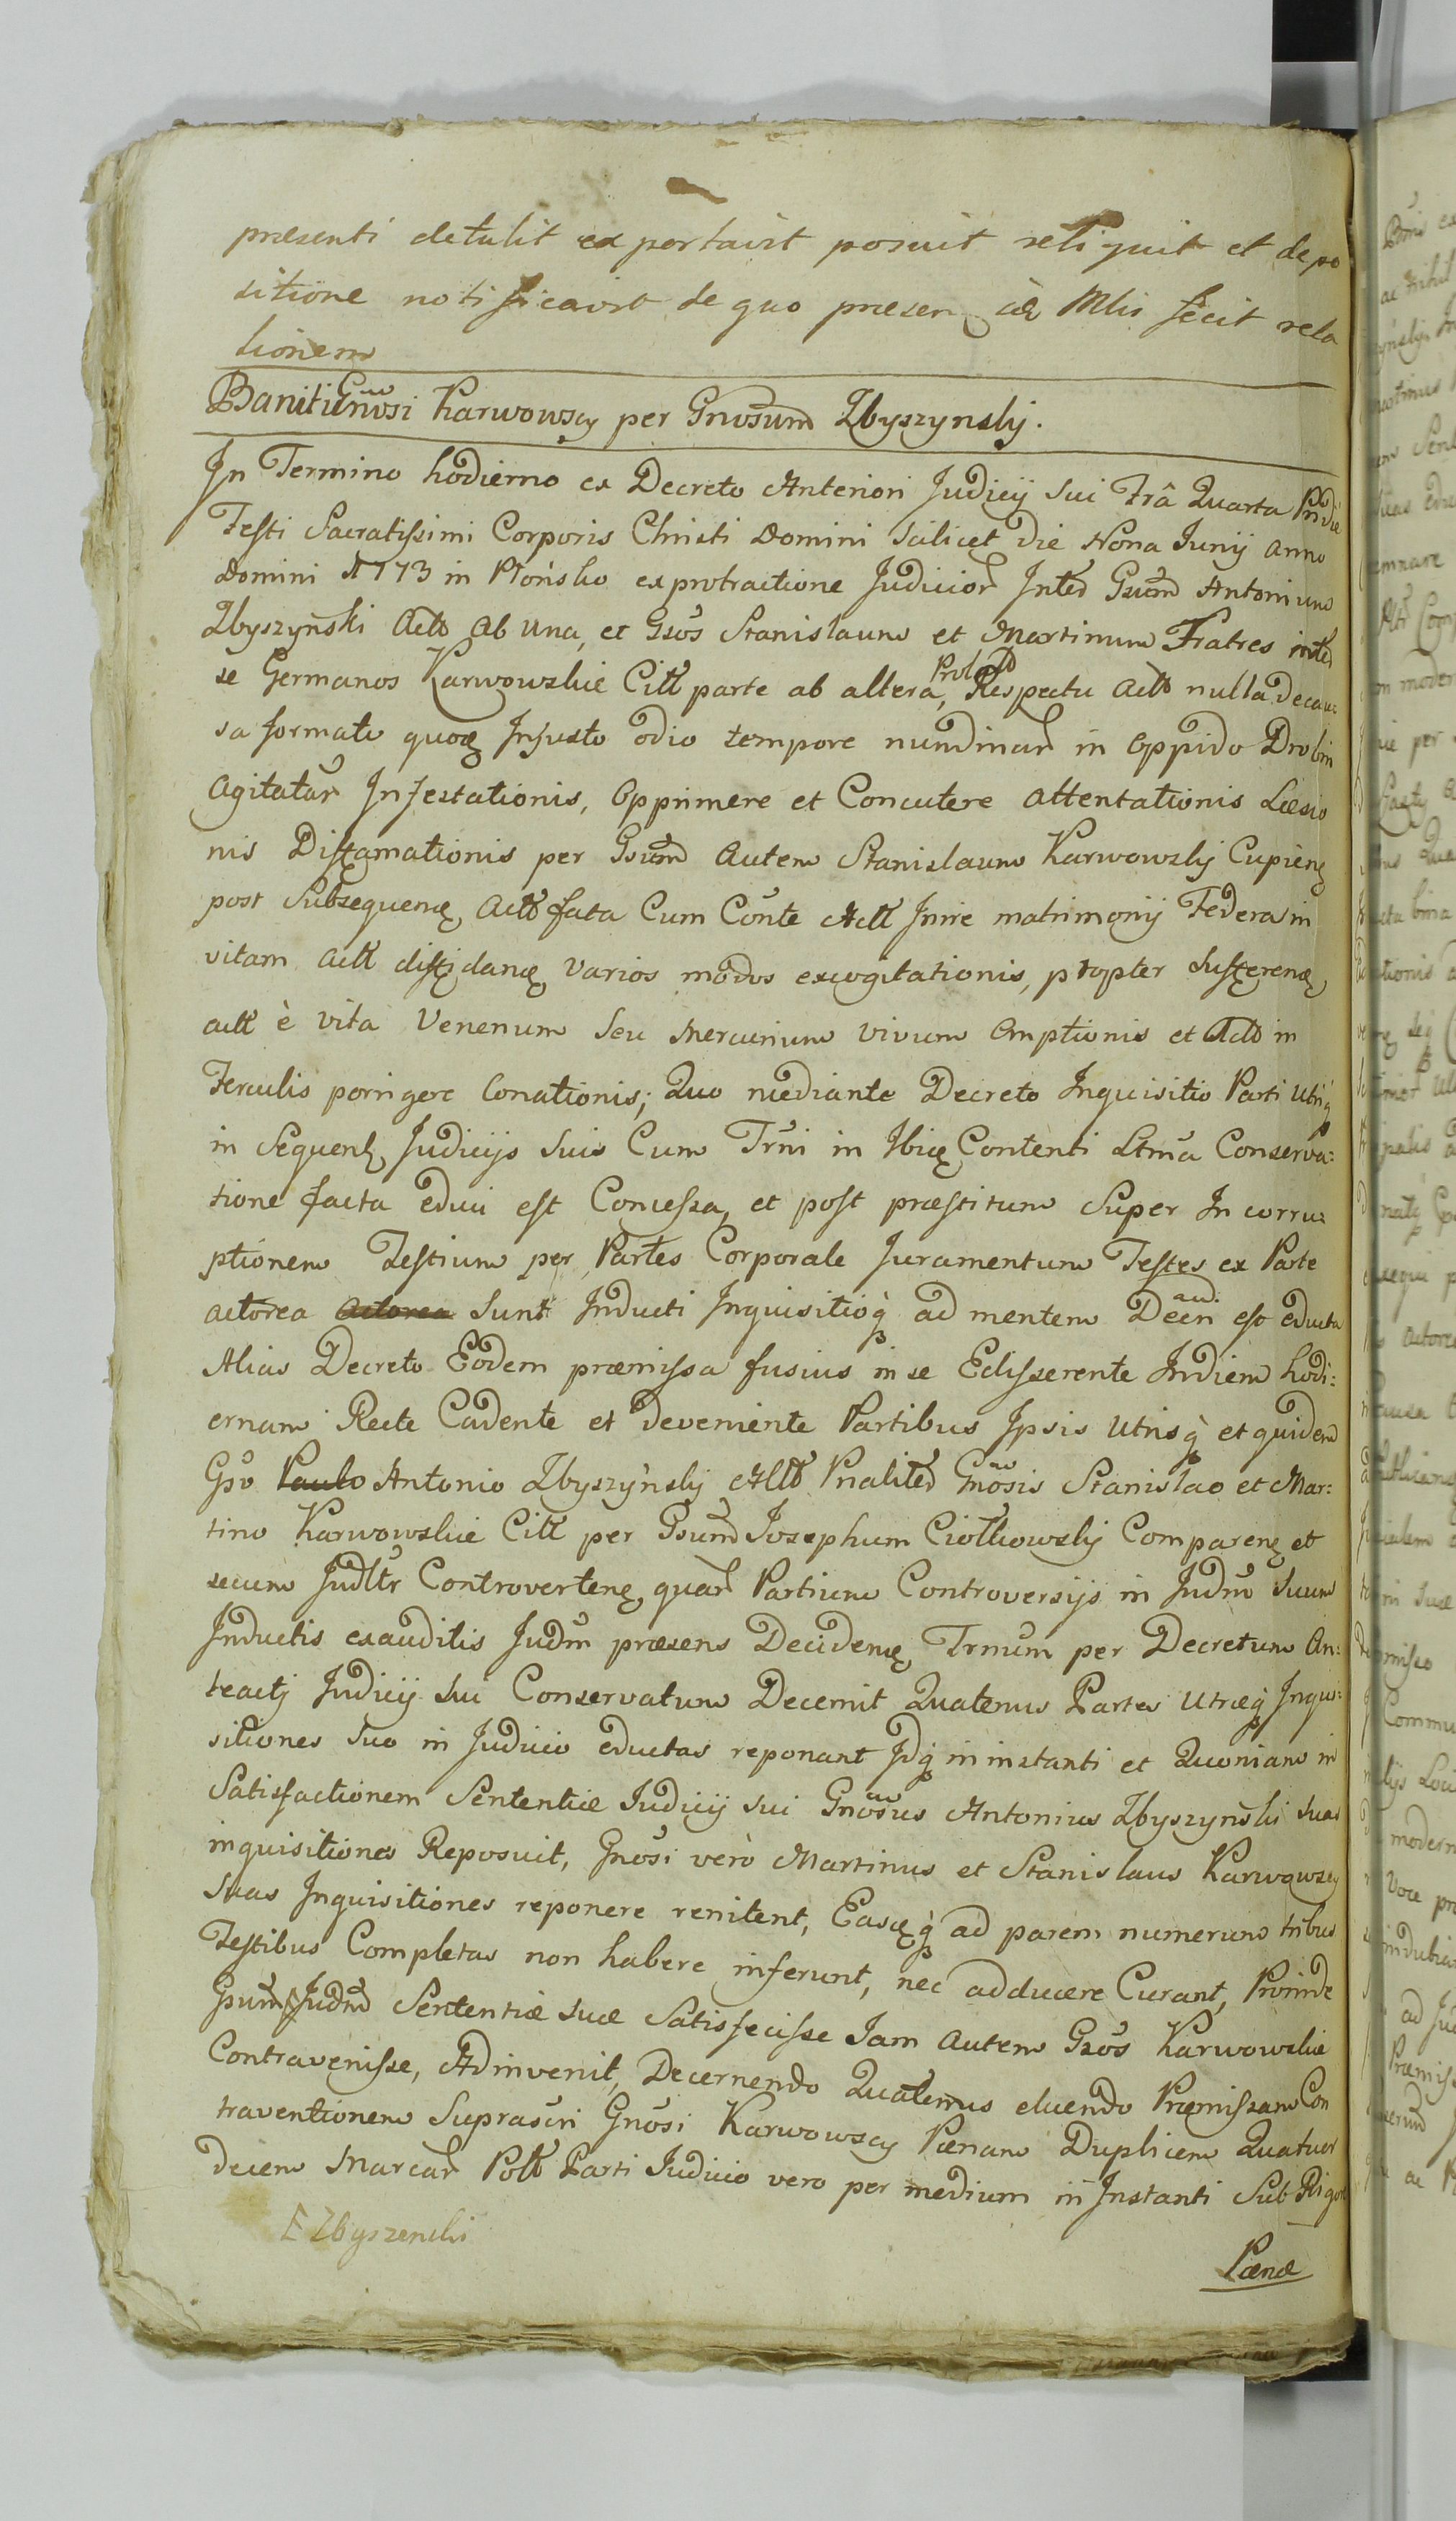 præsenti detulit exportavit posuit reliquit et depo
sitione notificavit de quo præsen ide Mlis fecit rela
tionem
Baniti Gnosi Karwowscy per Gnosum Zbyszynsky.
In Termino hodierno ex Decreto Anteriori Judicij sui Fra Quarta Pridie
Festi Sacratissimi Corporis Christi Domini scilicet Die Nona Junij anno
Domini 1773 in Płońsko ex protractione Judicior Inter Gsum Antonium
Zbyszyński Actt ab una, et Gsos Stanislaum et Martinum Fratres inter
se Germanos Karwowskie Citt parte ab altera, Respectu Actt nulla de cau:
sa formati quoq Injusto odio tempore nundinar in oppido Drobin
agitatar Infestationis, Opprimere et Concutere attentationis Læsio
nis Diffamationis per Gsum autem Stanislaum Karwowsky Cupien
post Subsequen Actt fata Cum Conte Actt Inire matrimonij Federa in
vitam Actt diffidan varios modos excogitationis, propter sufferen
actt è vita Venenum seu Mercurium vivum Emptionis et Actt in
Ferculis porrigere Conationis; Quo mediante Decreto Inquisitio Parti utriq
in Sequen Judicijs suis Cum Trni in Ibiq Contenti Ltma Conserva:
tione facta educi est Concessa, et post præstitum Super Incorru:
ptionem Testium per Partes Corporale Juramentum Testes ex Parte
actorea actorea sunt Inducti Inquisitioq ad mentem Decri est educta
Alias Decreto Eodem præmissa fusius in se Edisserente Indiem hodi:
ernam Recte Cadente et deveniente Partibus Ipsis utrisq et quidem
Gso Paulo Antonio Zbyszynsky Actt Pnaliter Gnosis Stanislao et Mar:
tino Karwowskie Citt per Gsum Josephum Ciołkowsky Comparen et
secum Judltr Controverten, quar Partium Controversijs in Judm suum
Inductis exauditis Judm præsens Deciden Trnum per Decretum An:
teacty Judicij sui Conservatum Decernit Quatenus Partes utræq Inqui:
sitiones suo in Judicio eductas reponant Idq in instanti et Quoniam in
Satisfactionem Sententiæ Judicij sui Gnosus Antonius Zbyszyński suas
inquisitiones Reposuit, Gnosi verò Martinus et Stanislaus Karwowscy
suas Inquisitiones reponere renitent, Easq ad parem numerum tribus
Testibus Completas non habere inferunt, nec adducere Curant, Proinde
Gsum Judm Sententiæ suæ Satisfecisse Jam autem Gsos Karwowskie
Contravenisse, Adinvenit, Decernendo Quatenus eluendo Præmissam Con
traventionem Suprascri Gnosi Karwowscy Pænam Duplicem Quatuor
decem Marcar Poll Parti Judicio vero per medium in Instanti Sub Rigore
E Zbyszenski
Pænæ